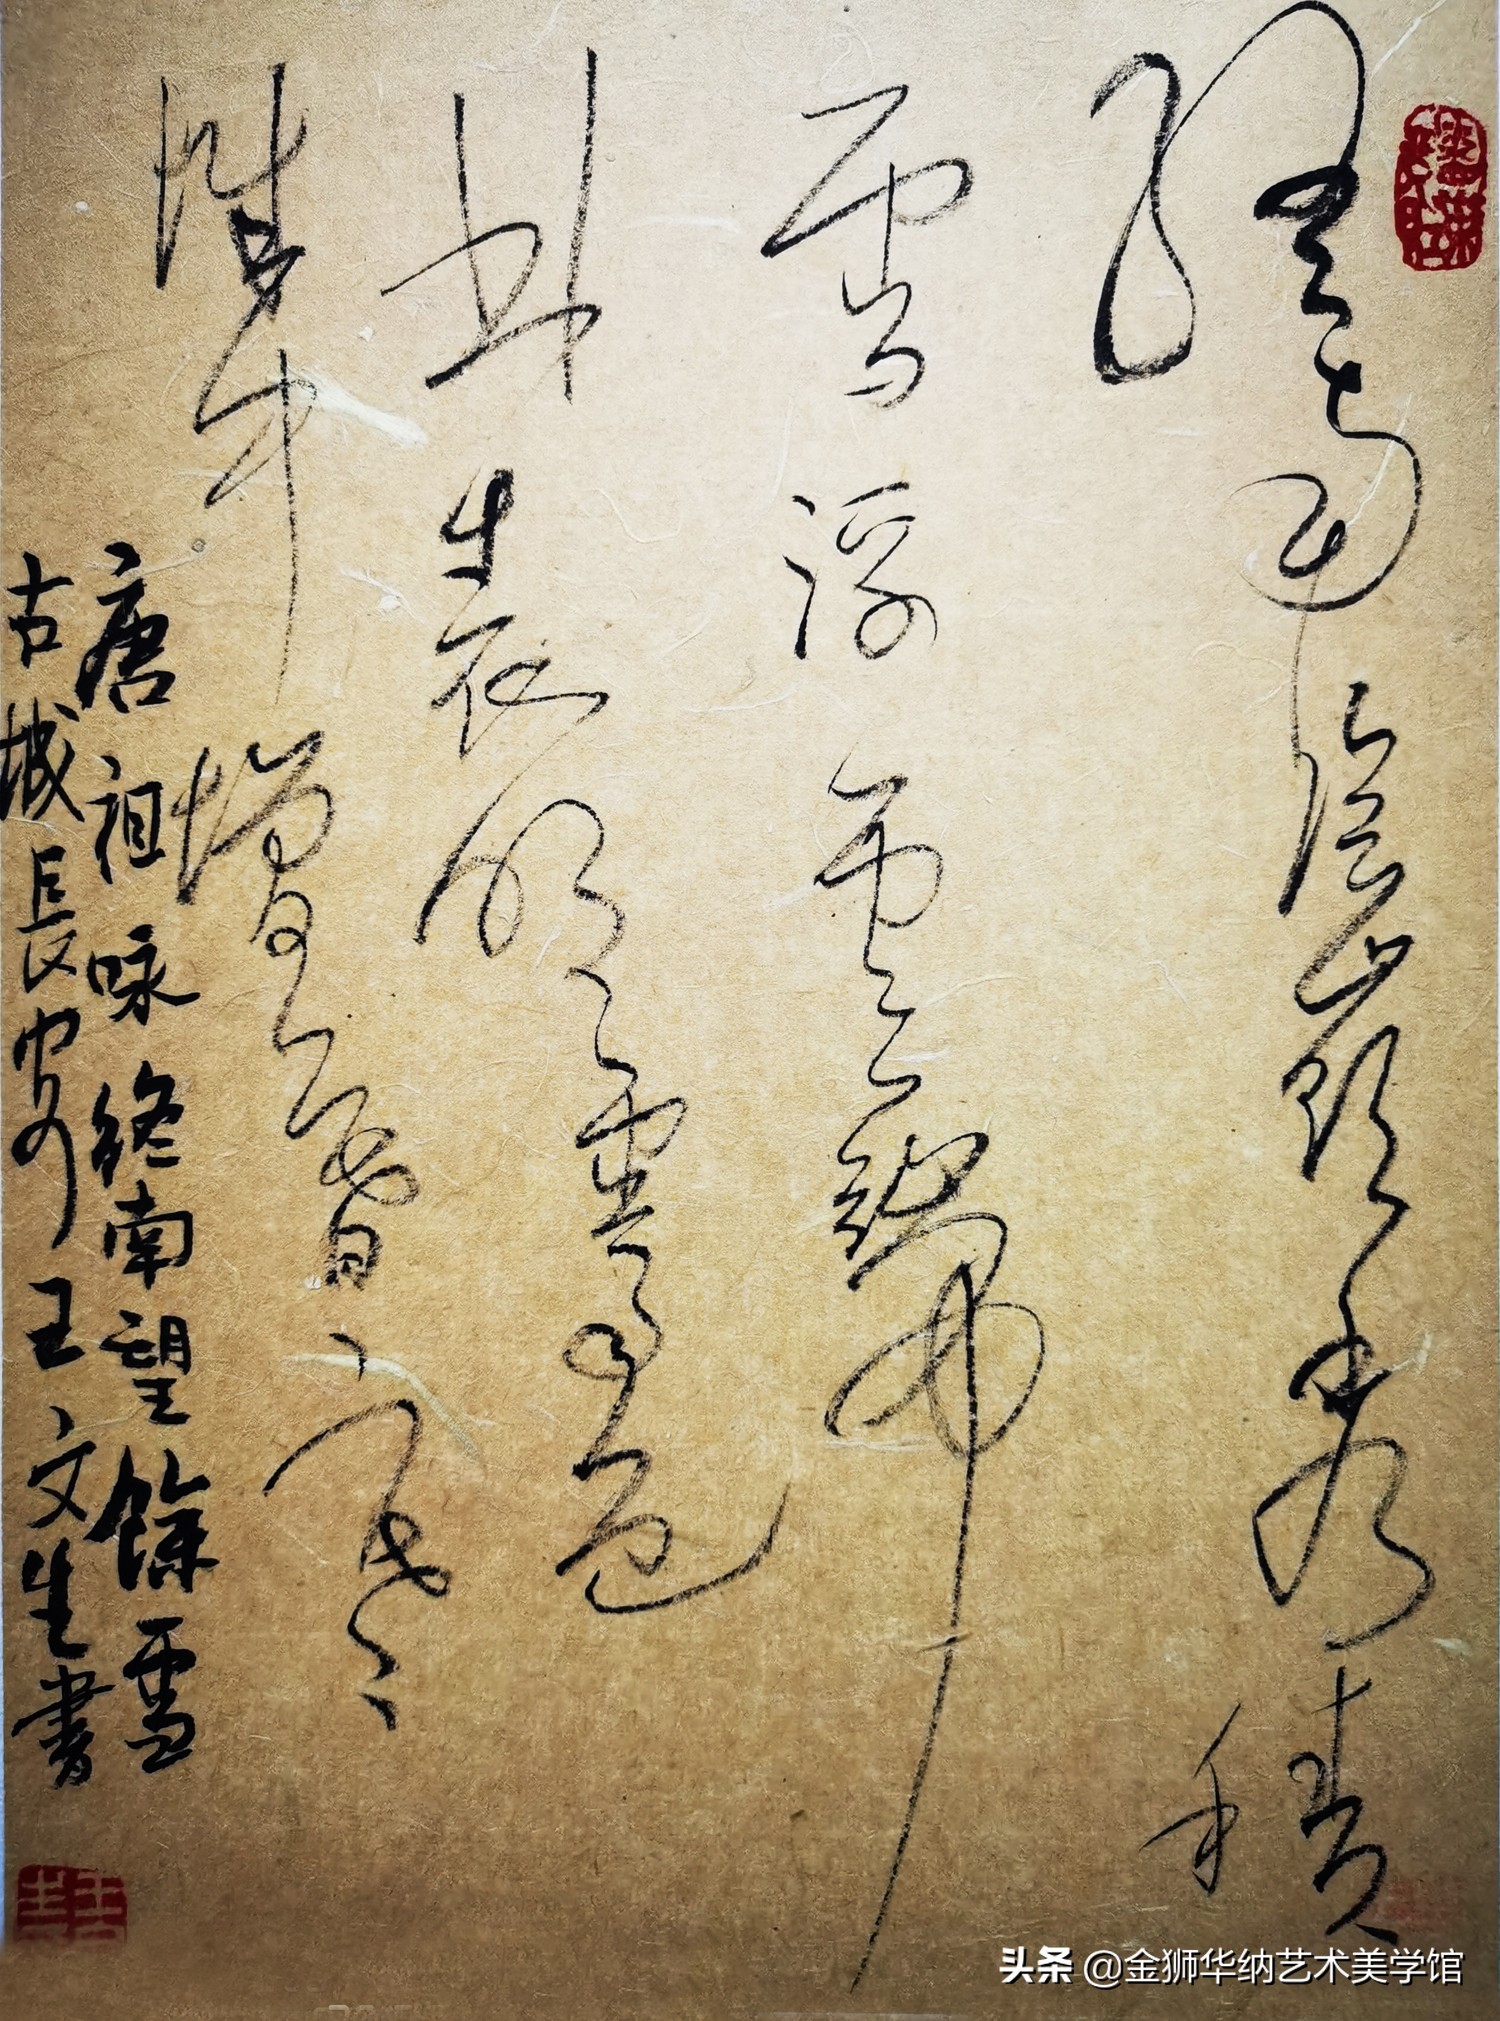 終南陰嶺秀積
雪浮雲端
林表明霽色
城中增暮寒
唐祖咏終南望餘雪
古城長安王文生書
头条 @金狮华纳艺术美学馆